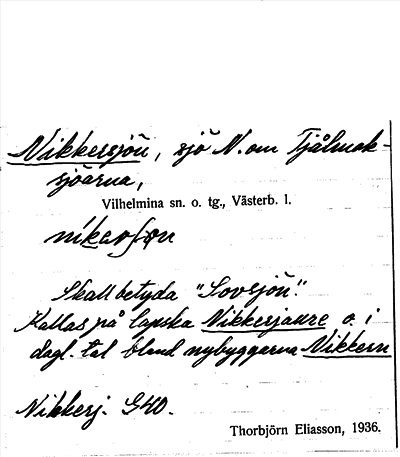 Nikkersjön, sjö N. om Tjålmak-
sjöarna,
Vilhelmina sn. o. tg., Västerb. l.
Skall betyda "Sovsjön".
Kallas på lapska Nikkerjaure o. i
dagl. tal bland nybyggarna Nikkern
Nikkerj. GKO.
Thorbjörn Eliasson, 1936.